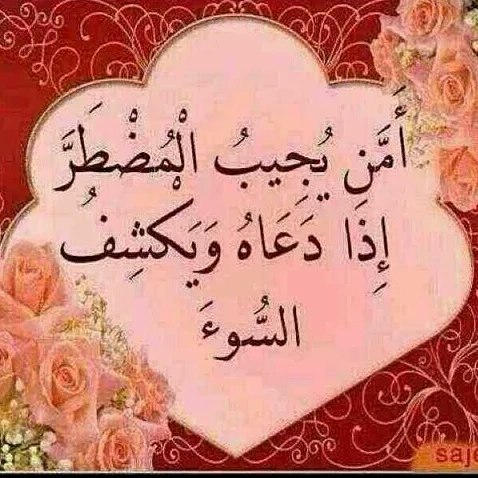 أَمَّن يُجِيبُ الْمُضْطَرَّ
إِذَا دَعَاهُ وَيَكْشِفُ
السُّوءَ